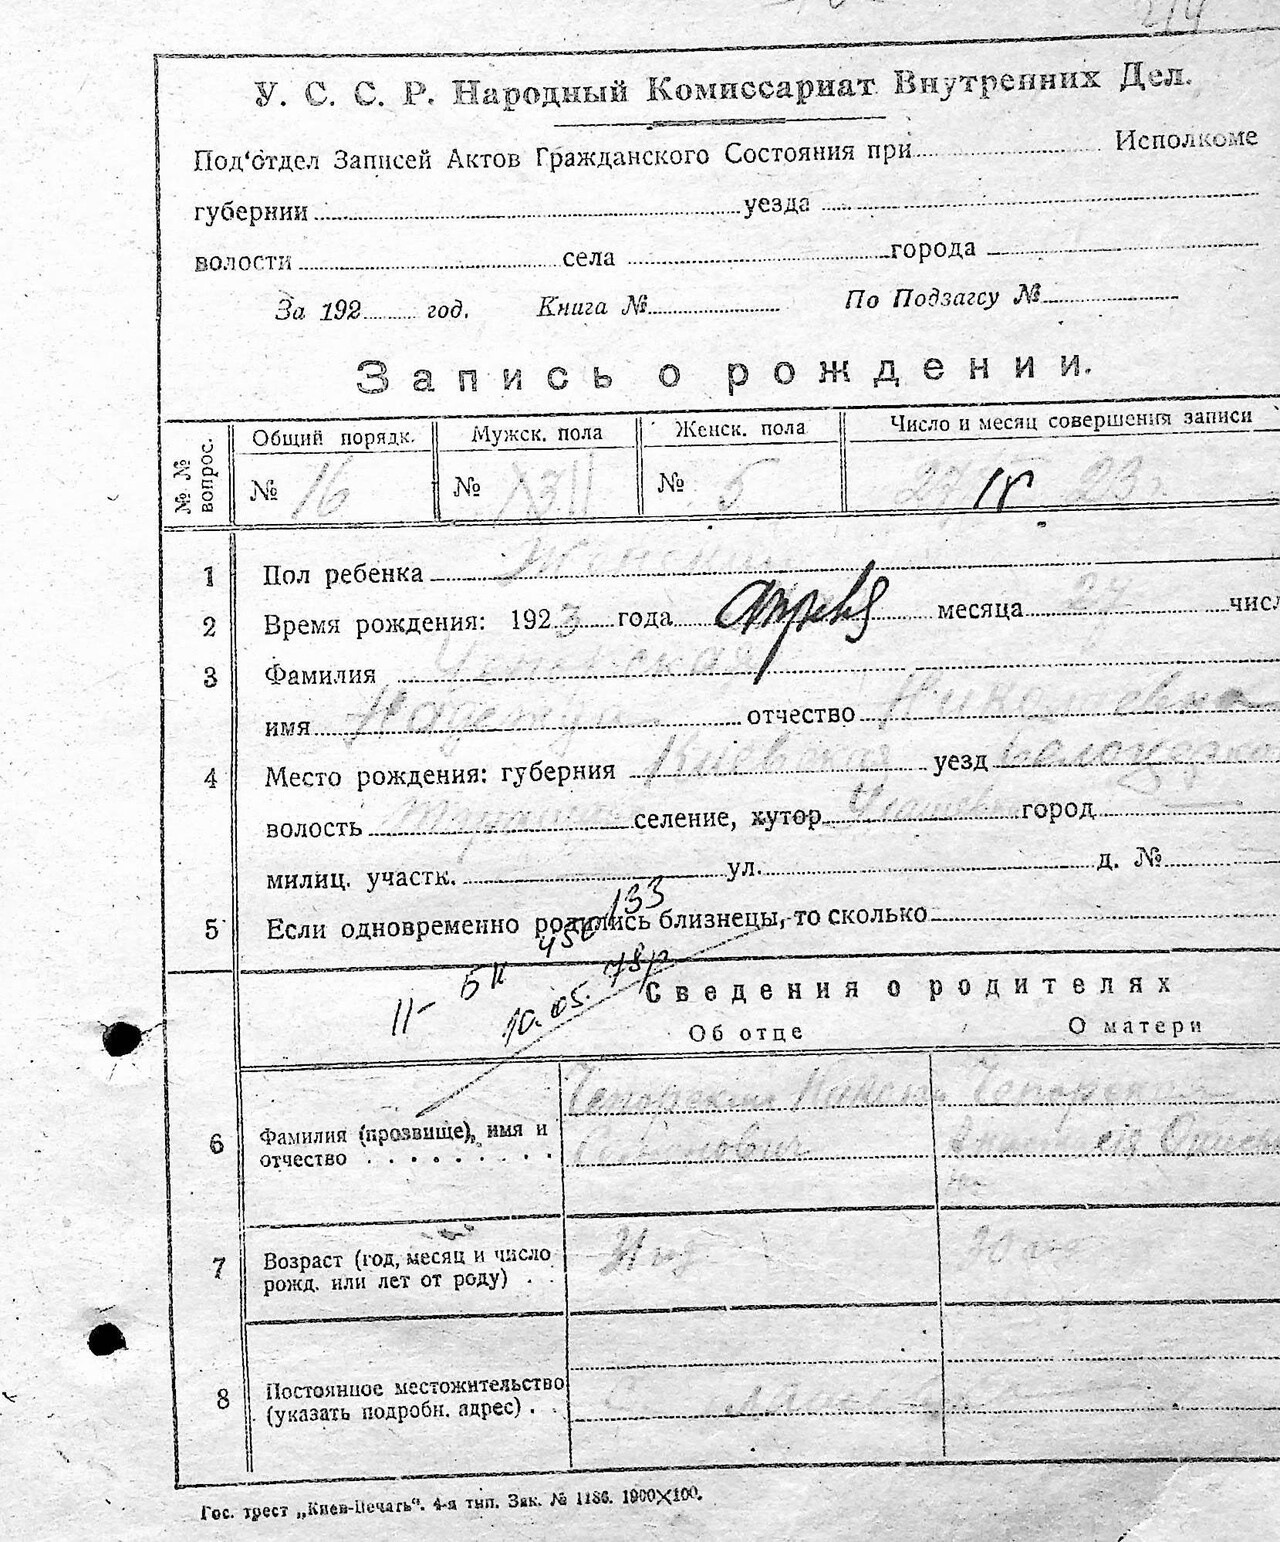 214
У. С. С. Р. Народный Комиссариат Внутренних Дел.
Под‘отдел Записей Актов Гражданского Состояния при Исполкоме
губернии уезда
волости села города
За 192 год. Книга № По Подзагсу №
Запись о рождении.
№ № вопрос. Общий порядк. Мужск. пола Женск. пола Число и месяц совершения записи
№ 16 № № 5 27 IV 23 г.
1 Пол ребенка Женский
2 Время рождения: 1923 года апреля месяца 24 числ
3 Фамилия
имя Надежда отчество Николаевна
4 Место рождения: губерния Киевская уезд Белоцерков
волость селение, хутор город
милиц. участк. ул. д. №
5 Если одновременно родились близнецы, то сколько
II- БК 456133
10.05.78р
Сведения о родителях
Об отце О матери
6 Фамилия (прозвище), имя и отчество
Чепорский
Чепорская
7 Возраст (год, месяц и число рожд. или лет от роду)
31 год
30
8 Постоянное местожительство (указать подробн. адрес)
Гос. трест „Киев-Печать“. 4-я тип. Зак. № 1186. 1900×100.